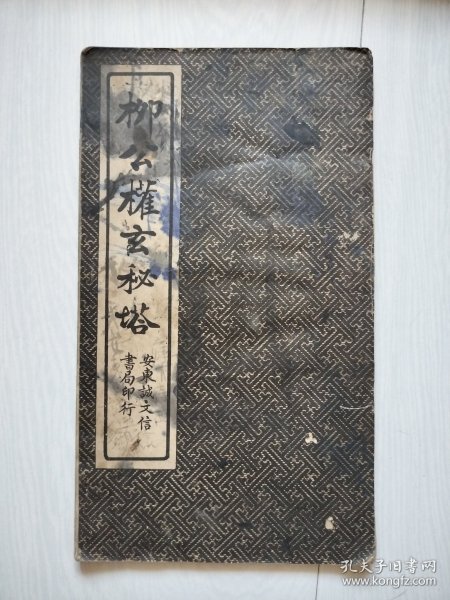 柳公權玄秘塔
安東誠文信
書局印行
孔夫子旧书网
www.kongfz.com